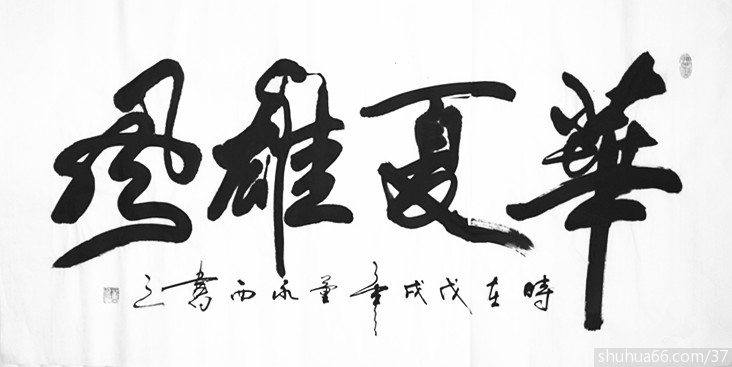 華夏雄風
時在戊戌年董永西書之
shuhua66.com/37